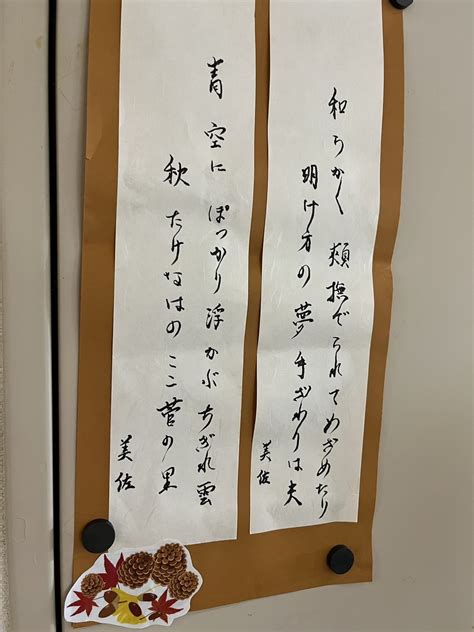 和らかく 頬撫でられてめざめたり
明け方の夢 手ざわりは夫
美佐
青空に ぽっかり浮かぶちぎれ雲
秋たけなはのここ菅の里
美佐